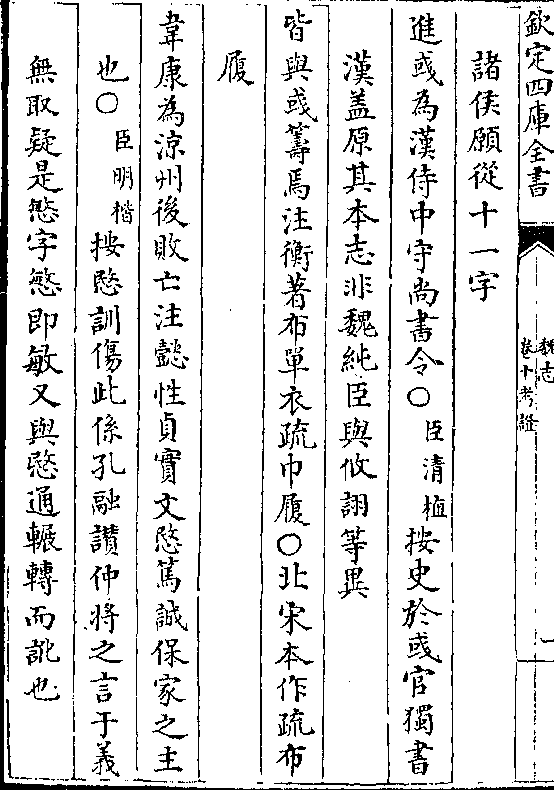 欽定四庫全書
魏志
卷十考證
一
諸侯願從十一字
進彧為漢侍中守尚書令○臣清植按史於彧官獨書
漢盖原其本志非魏純臣與攸詡等異
皆與彧籌焉注衡著布單衣疏巾履○北宋本作疏布
履
韋康為涼州後敗亡注懿性貞實文愍篤誠保家之主
也○臣明楷按愍訓傷此係孔融讚仲將之言于義
無取疑是慜字慜即敏又與愍通輾轉而訛也